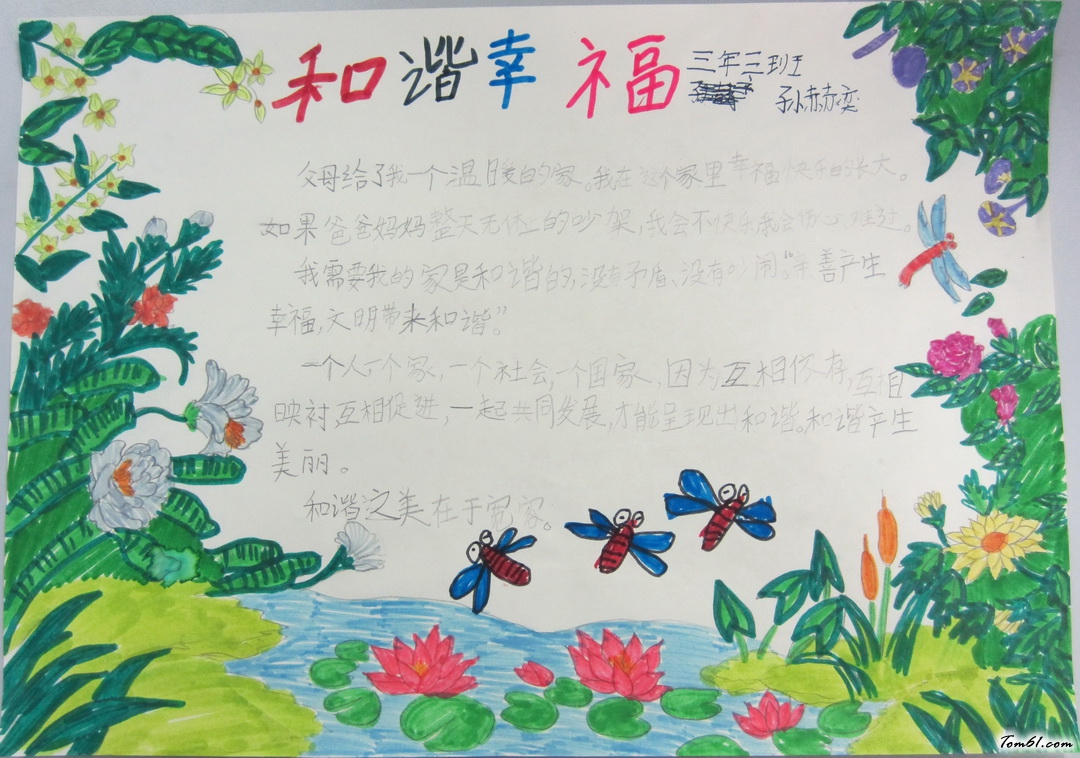 和谐幸福
三年三班
孙赫奕
父母给了我一个温暖的家。我在这个家里幸福快乐的张大。
如果爸爸妈妈整天无休止的吵架,我会不快乐我会伤心难过。
我需要我的家是和谐的,没有矛盾、没有吵闹。“善产生
幸福,文明带来和谐”。
一个人,一个家,一个社会,一个国家,因为互相依存,互相
映衬互相促进,一起共同发展,才能呈现出和谐。和谐产生
美丽。
和谐之美在于家。
Tom61.com